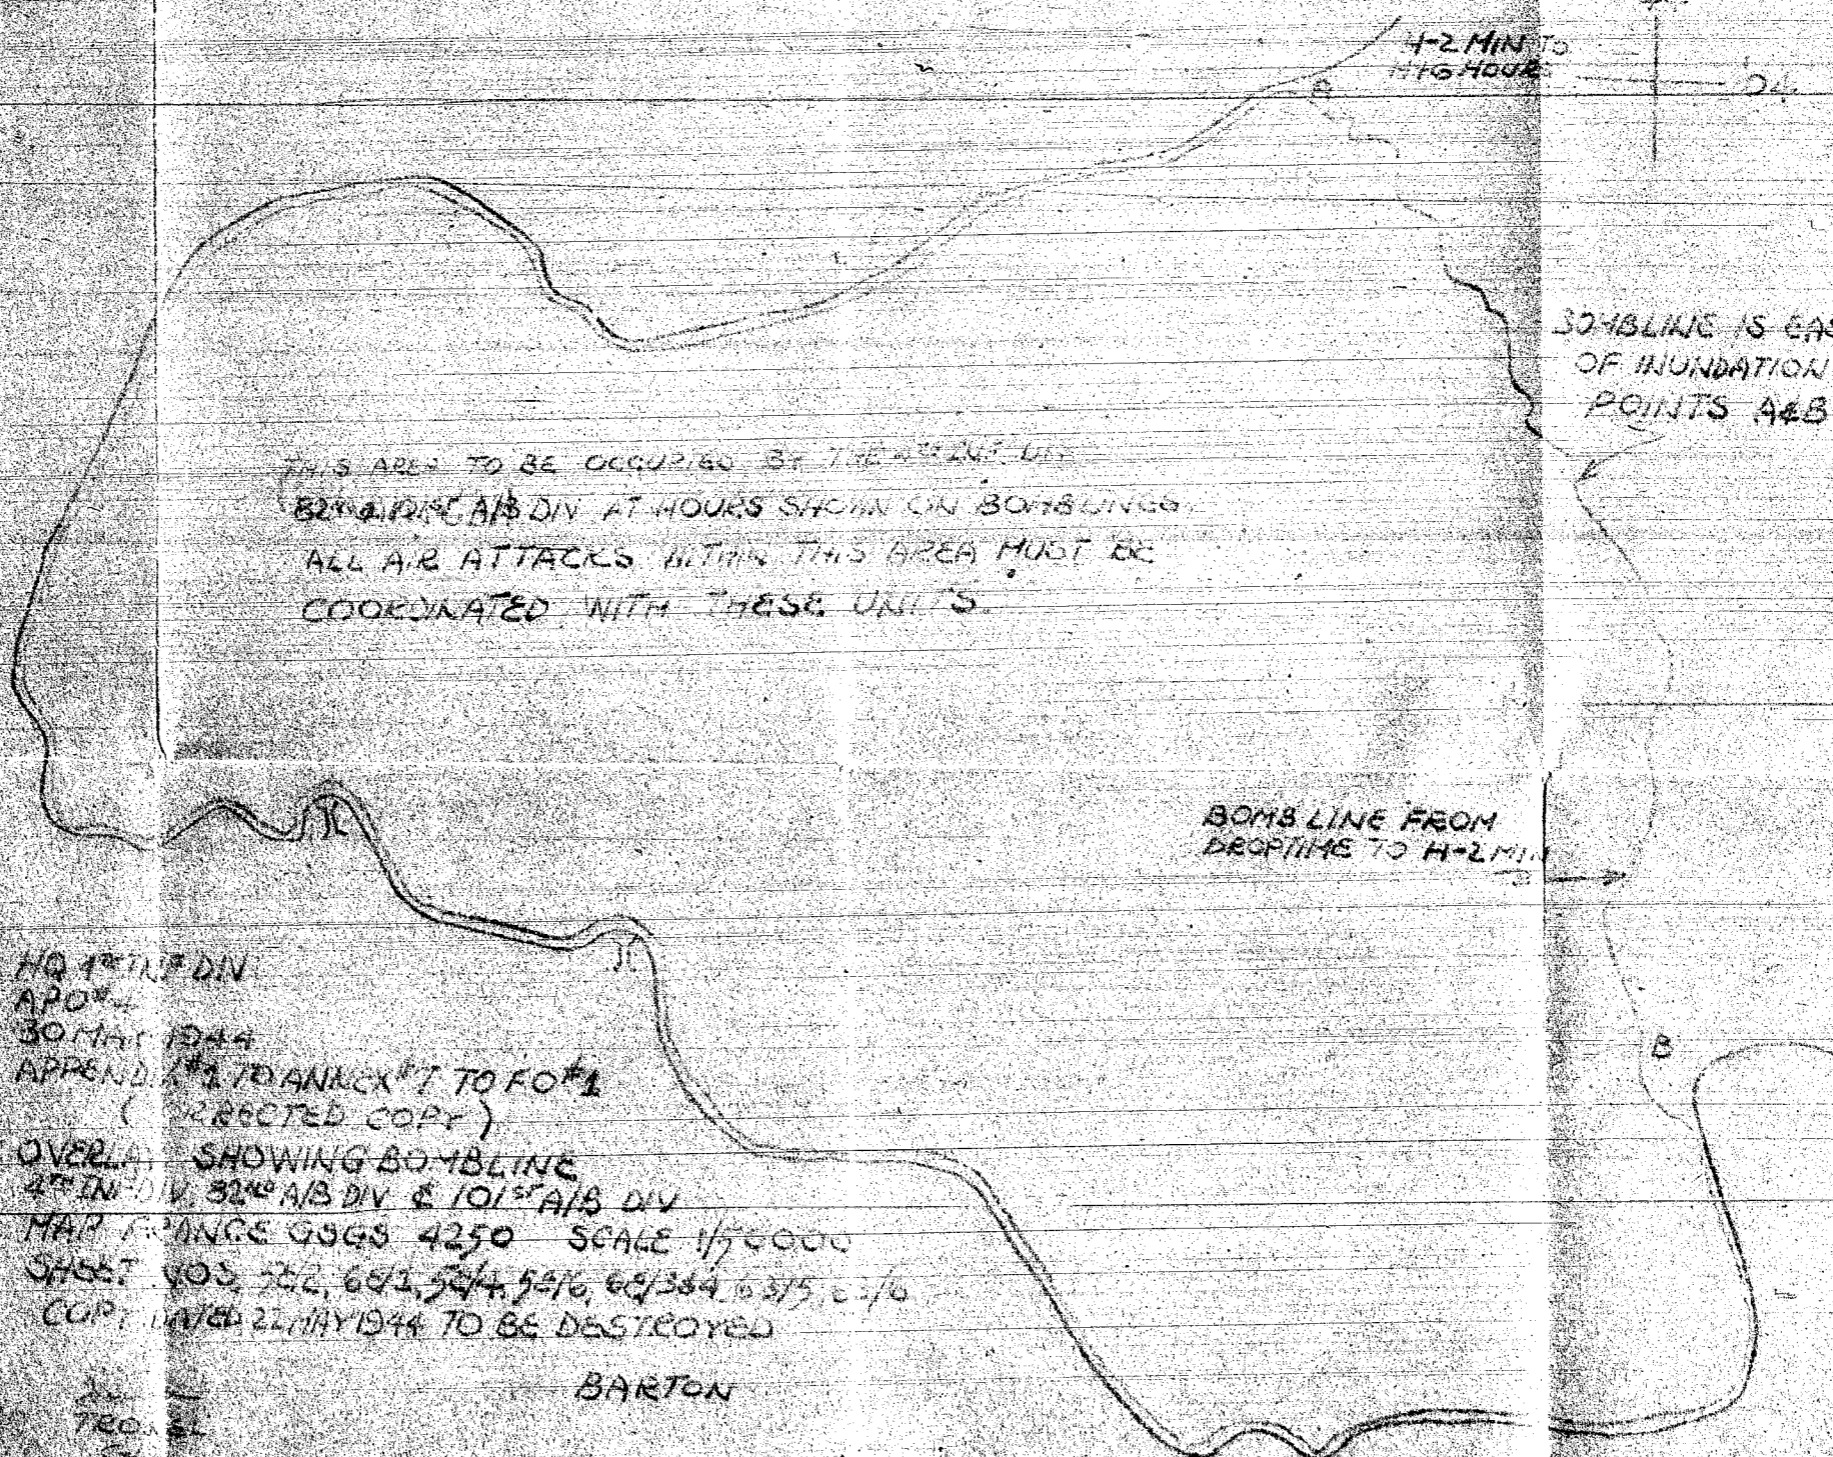 H-2 MIN TO
HOURS
A
BOMBLINE IS EAS
OF INUNDATION
POINTS A&B
THIS AREA TO BE OCCUPIED BY THE 4TH INF DIV
82ND A/B DIV AT HOURS SHOWN ON BOMBLINES
ALL AIR ATTACKS WITHIN THIS AREA MUST BE
COORDINATED WITH THESE UNITS.
BOMB LINE FROM
DROPTIME TO H-2 MIN
B
HQ 4TH INF DIV
APO #4
30 MAY 1944
TO ANNEX #7 TO FO #1
( CORRECTED COPY )
OVERLAY SHOWING BOMBLINE
4TH INF DIV, 82ND A/B DIV & 101ST A/B DIV
MAP FRANCE GSGS 4250 SCALE 1/50000
SHEET 6E/3&4
COPY DATED 22 MAY 1944 TO BE DESTROYED
BARTON